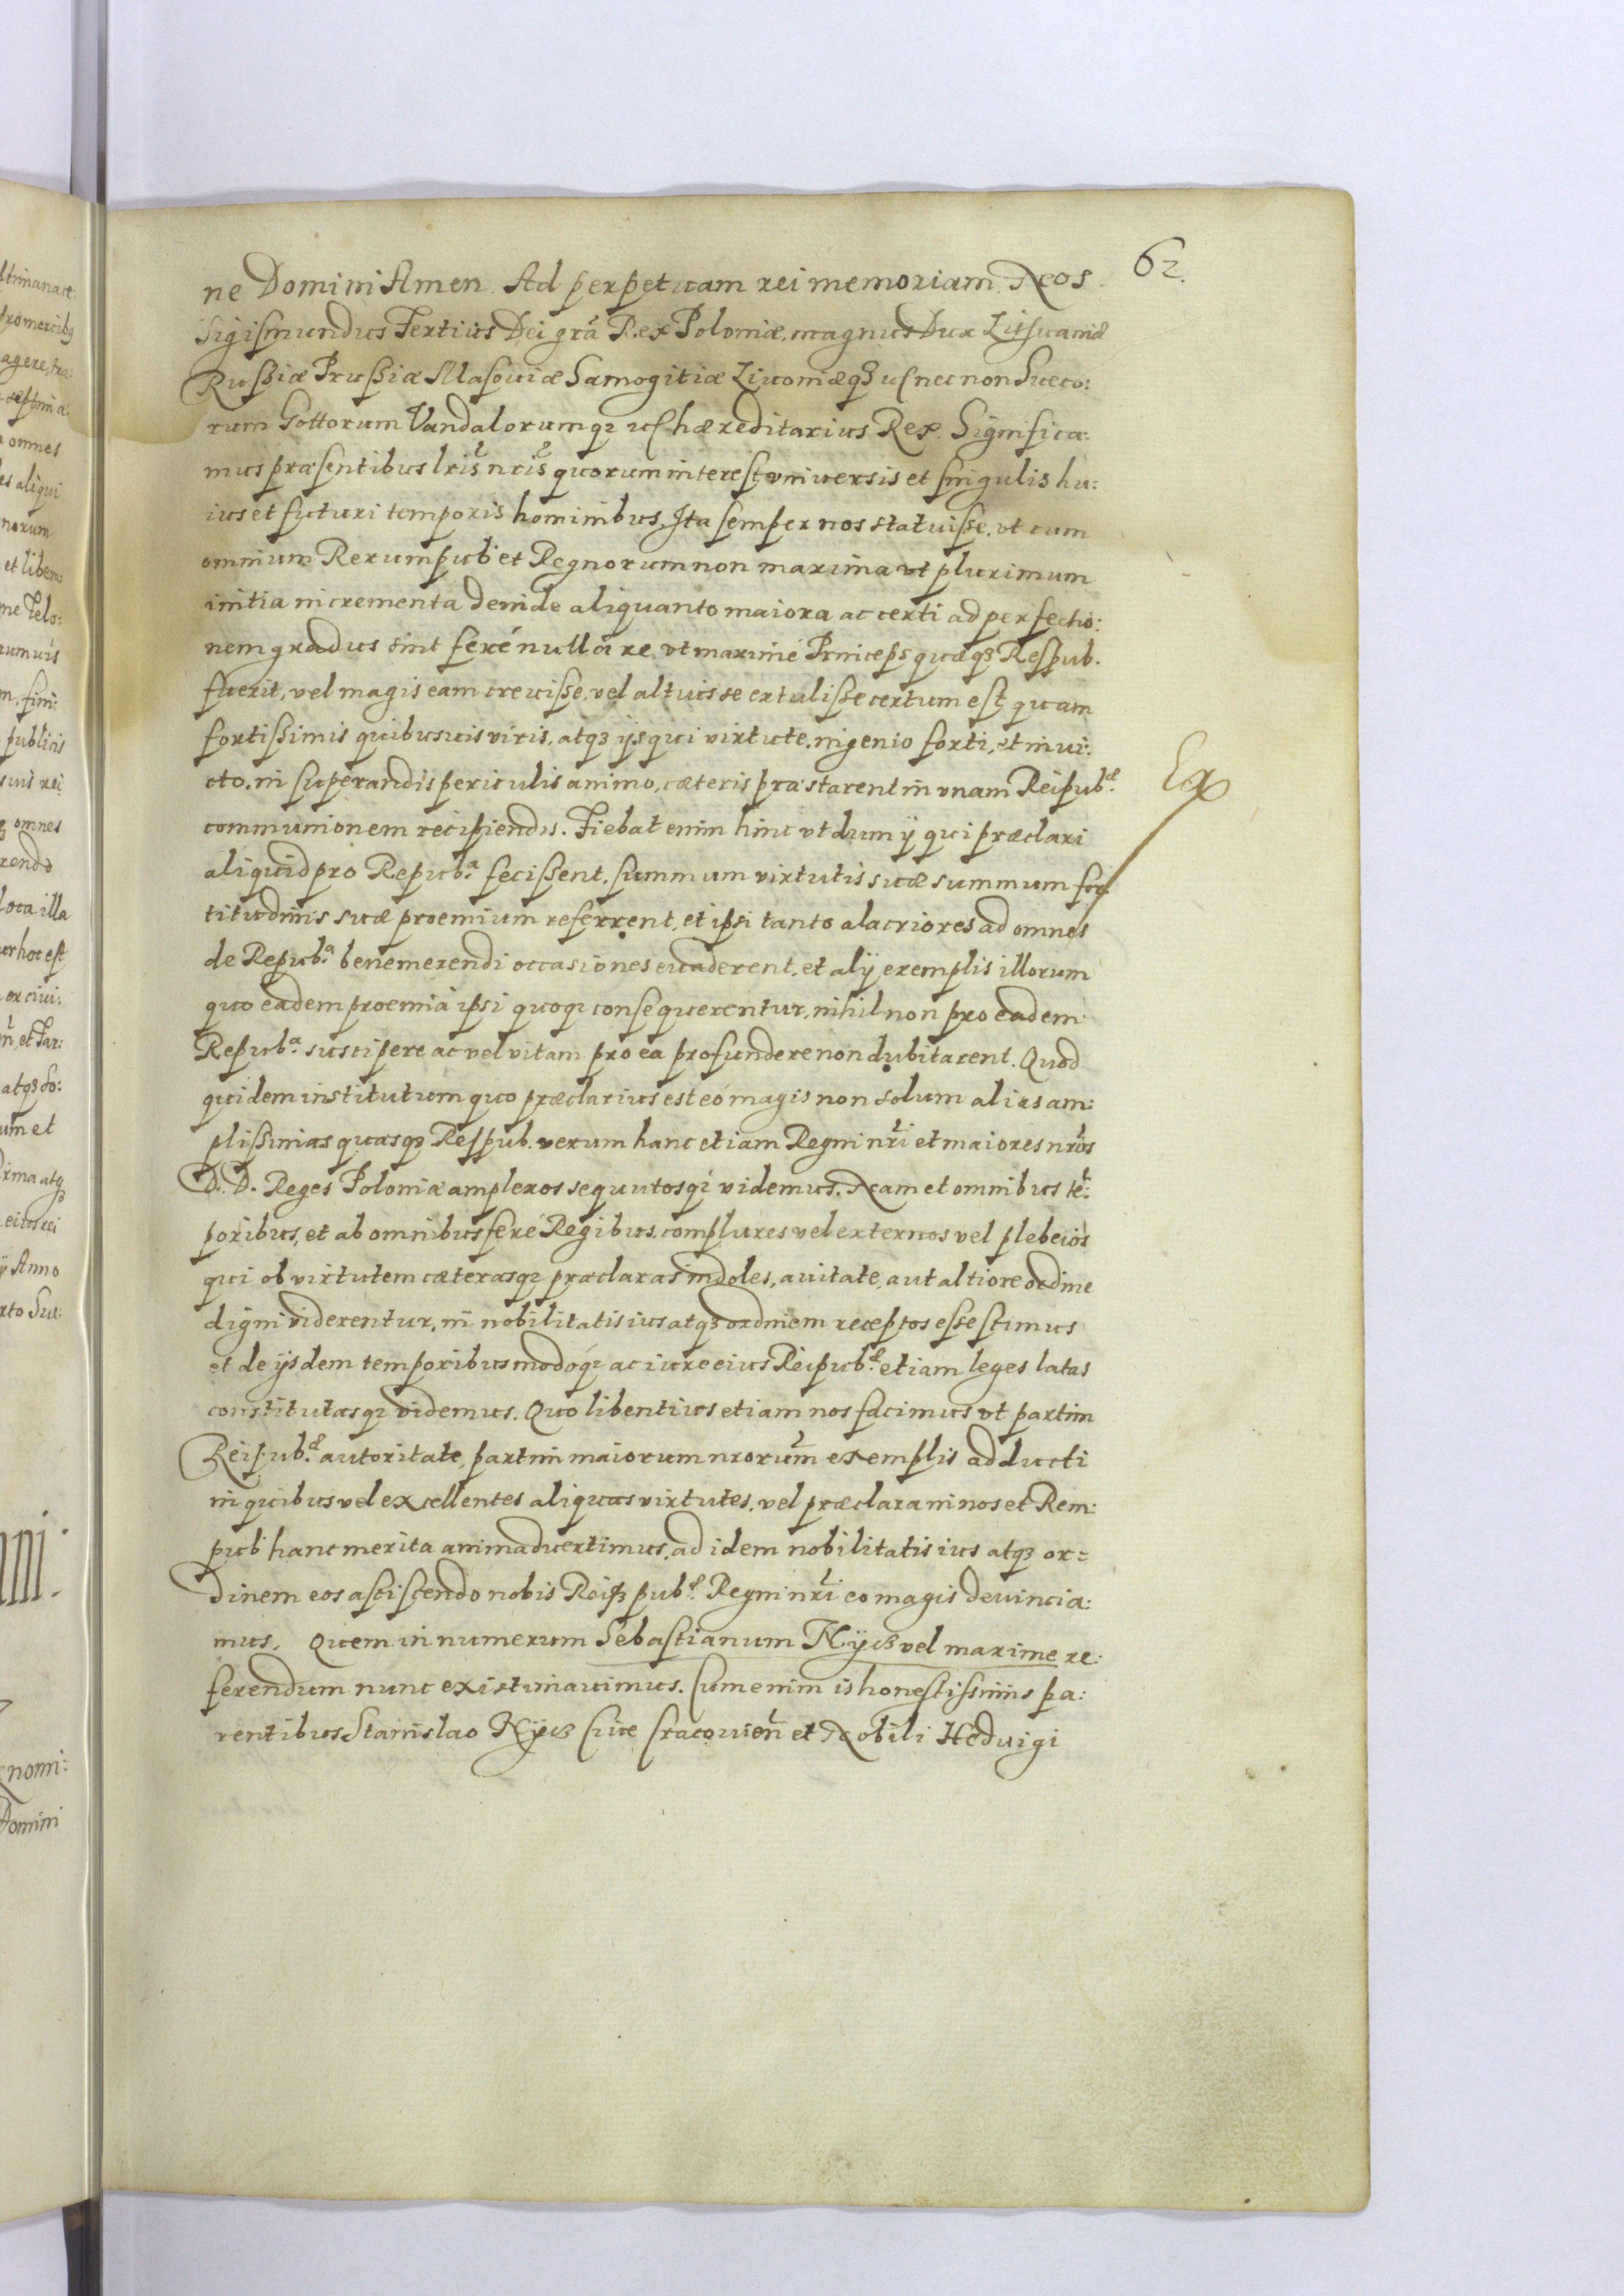 62.
ne Domini Amen. Ad perpetuam rei memoriam. Nos
Sigismundus Tertius Dei gra Rex Poloniæ, magnus Dux Lithuaniæ
Russiæ Prussiæ Masoviæ Samogitiæ Livoniæqʒ nec non Sueco:
rum Gottorum Vandalorumqʒ hæreditarius Rex. Significa:
mus præsentibus lris nris quorum interest vniversis et singulis hu:
ius et futuri temporis hominibus, Ita semper nos statuisse, vt cum
omnium Rerumpub et Regnorum non maxima vt plurimum
initia incrementa deinde aliquanto maiora ac certi ad perfectio:
nem gradus sint feré nullá re vt maximé Princeps quæqʒ Respub.
fuerit, vel magis eam crevisse, vel altius se extulisse certum est quam
fortissimis quibusuis viris, atqʒ ijs qui virtute, ingenio forti, et inui:
cto, in superandis periculis animo, cæteris præstarent in vnam Reipubæ
communionem recipiendis. Fiebat enim hinc vt dum ij qui præclari
aliquid pro Repuba fecissent, summum virtutis suæ summum for
titudinis suæ proemium referrent, et ipsi tanto alacriores ad omnes
de Repuba benemerendi occasiones euaderent, et alij exemplis illorum
quo eadem proemia ipsi quoqʒ consequerentur, nihil non pro eadem
Repuba suscipere ac vel vitam pro ea profundere non dubitarent. Quod
quidem institutum quo præclarius est eó magis non solum alias am:
plissimas quasqʒ Respub. verum hanc etiam Regni nri et maiores nros
D. D. Reges Poloniæ amplexos sequutosqʒ videmus. Nam et omnibus te:
poribus, et ab omnibus feré Regibus, complures vel externos vel plebeios
qui ob virtutem cæterasqʒ præclaras indoles, ciuitate, aut altiore ordine
digni viderentur, in nobilitatis ius atqʒ ordinem receptos esse scimus
et de ijsdem temporibus modóqʒ ac iure eius Reipubæ etiam leges latas
constitutasqʒ videmus. Quo libentius etiam nos facimus vt partim
Reipubæ autoritate, partim maiorum nrorum exemplis adducti
in quibus vel excellentes aliquas virtutes, vel præclara in nos et Rem:
pub hanc merita animaduertimus, ad idem nobilitatis ius atqʒ or=
dinem eos asciscendo nobis Reipʒ pubæ Regni nri eo magis devincia:
mus. Quem in numerum Sebastianum Nyʒ vel maxime re:
ferendum nunc existimauimus. Cum enim is honestissimis pa:
rentibus Stanislao Nyʒ Ciue Cracouien et Nobili Heduigi